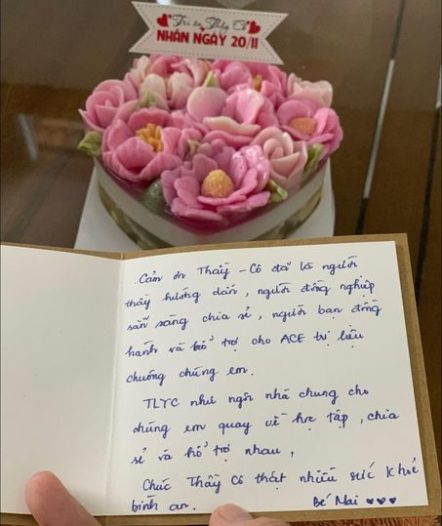 Tri ân Thầy Cô
NHÂN NGÀY 20/11
Cảm ơn Thầy - Cô đã là người
thầy hướng dẫn, người đồng nghiệp
sẵn sàng chia sẻ, người bạn đồng
hành và hỗ trợ cho ACE trị liệu
chuông chúng em.
TLTC như ngôi nhà chung cho
chúng em quay về học tập, chia
sẻ và hỗ trợ nhau,
Chúc Thầy Cô thật nhiều sức khoẻ
bình an.
Bé Mai